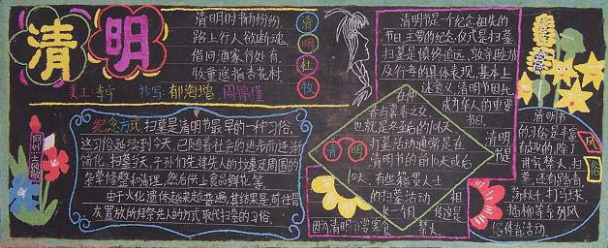 清明
清明时节雨纷纷
路上行人欲断魂
借问酒家何处有
牧童遥指杏花村
清明
杜牧
美工:李宇 书写:郁海增 周锦瑾
纪念方式:扫墓是清明节最早的一种习俗,
这习俗延续到今天,已随着社会的进步而逐渐
简化,扫墓当天,子孙们先将先人的坟墓及周围的
杂草修整和清理,然后供上食品鲜花等
由于火化遗体越来越普遍,其结果是前往骨
灰置放所拜祭先人的方式取代扫墓的习俗。
清明节是一个纪念祖先的
节日,主要的纪念仪式是扫墓
扫墓是慎终追远、敦亲睦族
及行孝的具体表现,基本上
述意义清明节因此
成为华人的重要
节日。
清明
在仲
春与暮春之交
也就是冬至后的106天
扫墓活动通常是在
清明节的前10天或后
10天。有些籍贯人士
的扫墓活动
长达一个月
清明节
的习俗是丰富
有趣的,除了
讲究禁火、扫
墓,还有踏青、
荡秋千、打马球、
插柳等一系列风
俗体育活动